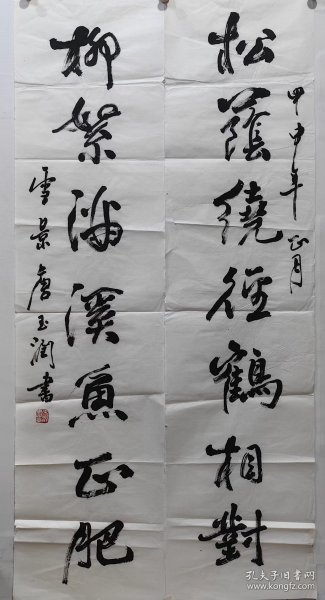 甲申年正月
松蔭繞徑鶴相對
柳絮滿溪魚正肥
雪景唐玉潤書
孔夫子旧书网